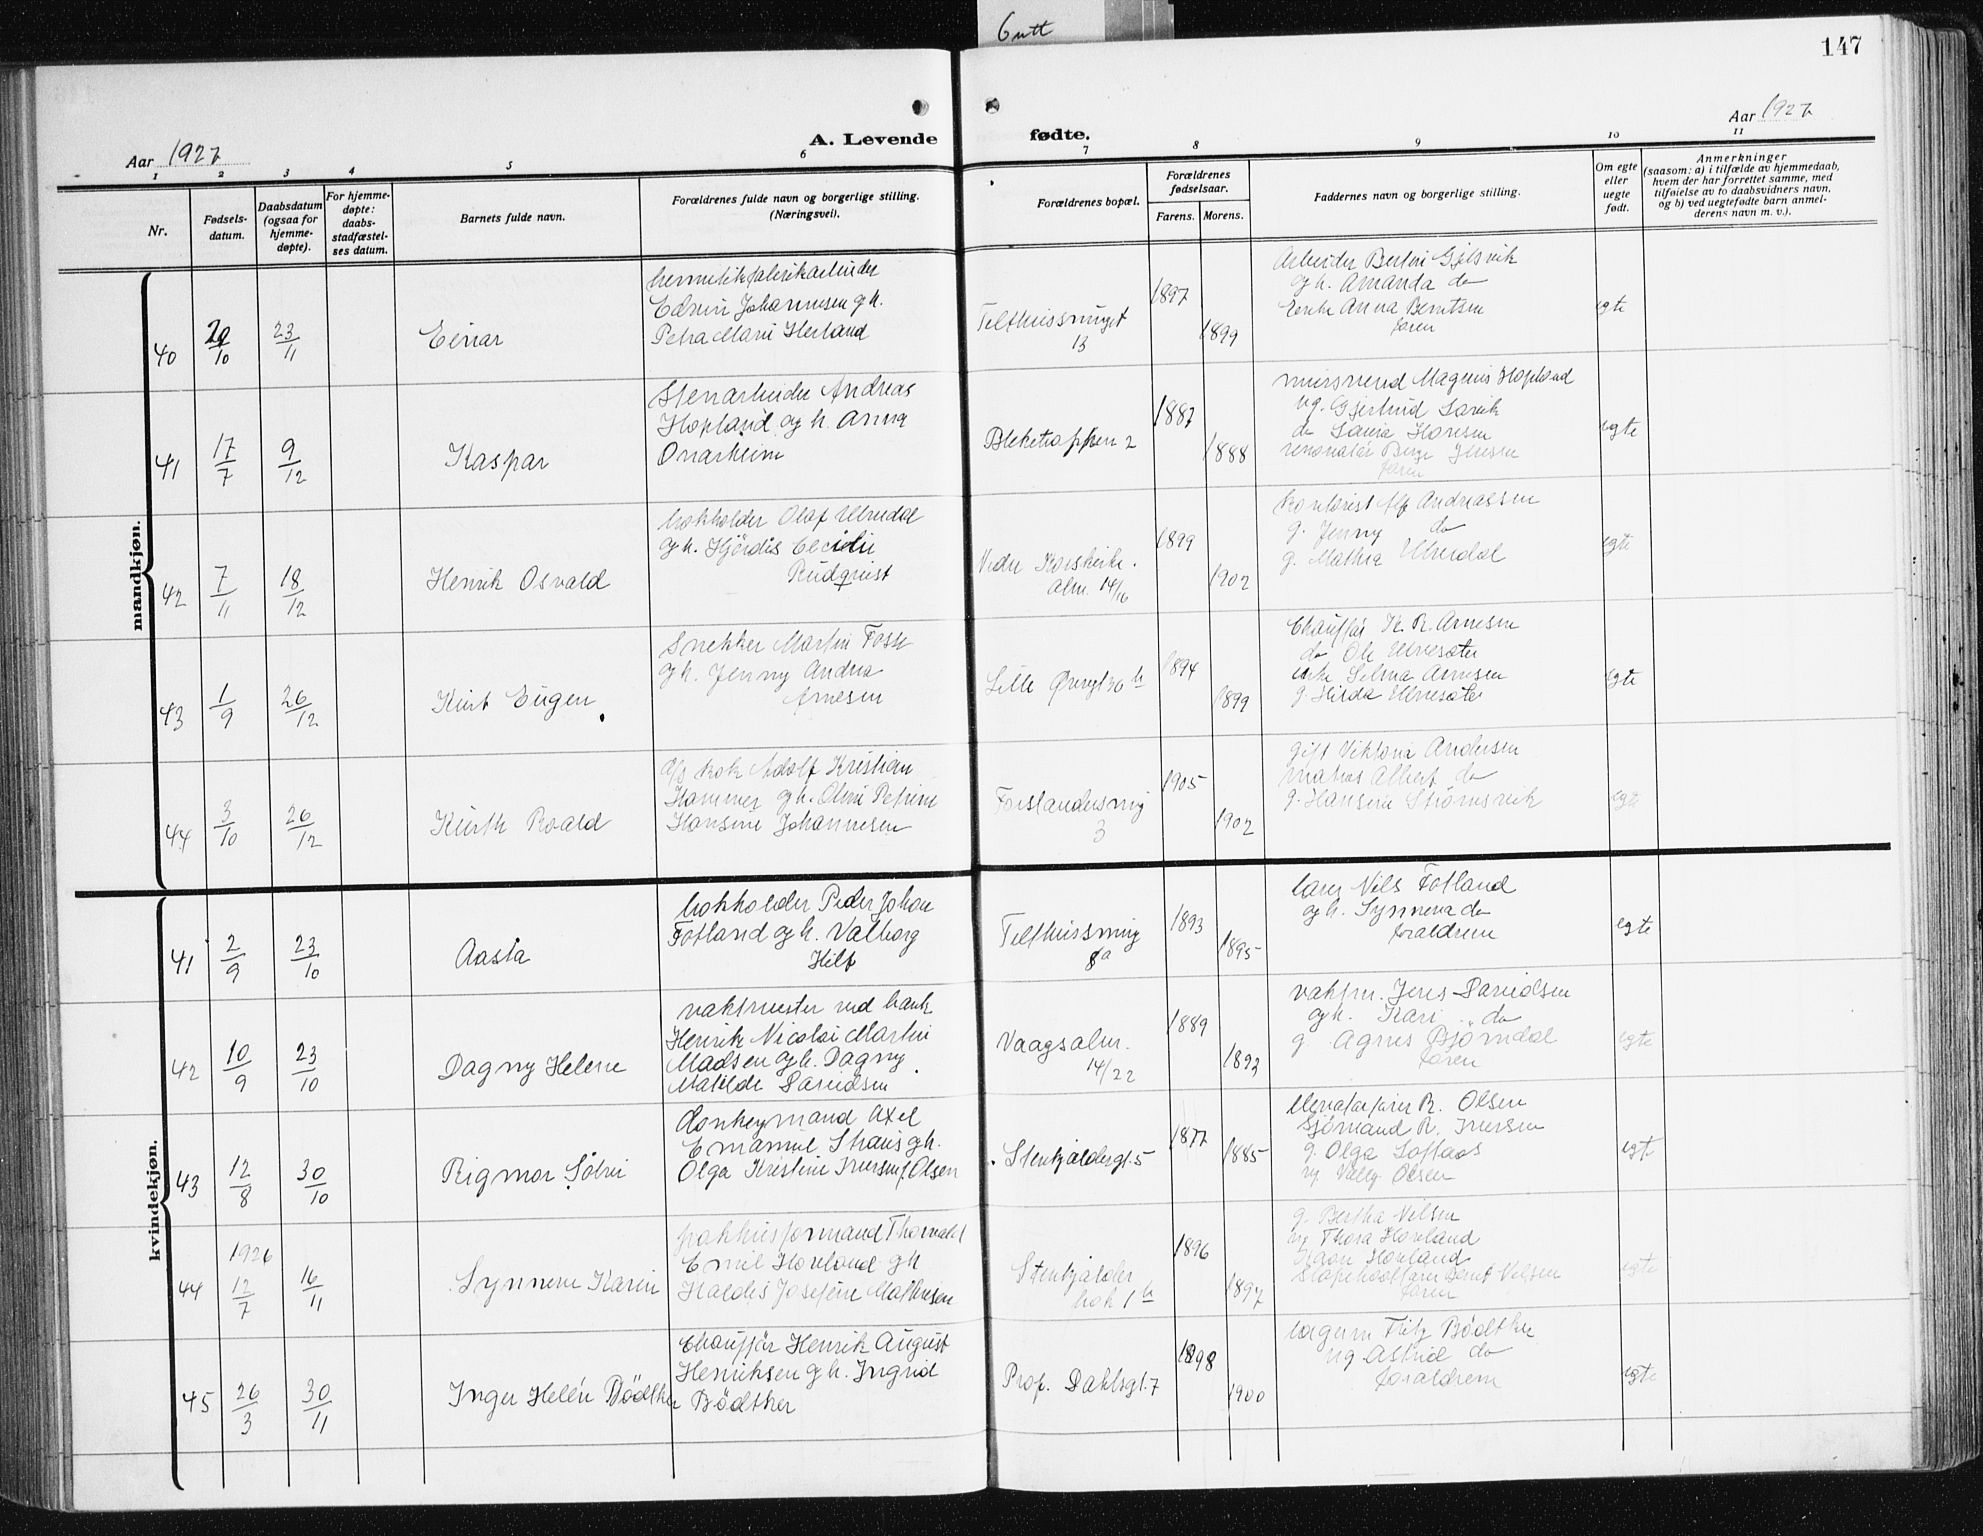 Gutt
147
Aar 1927
A. Levende fødte.
Aar 1927
1 2 3 4 5 6 7 8 9 10 11
Nr.
Fødsels-
datum.
Daabsdatum
(ogsaa for
hjemme-
døpte).
For hjemme-
døpte:
daabs-
stadfæstel-
ses datum.
Barnets fulde navn.
Forældrenes fulde navn og borgerlige stilling.
(Næringsvei).
Forældrenes bopæl.
Forældrenes
fødselsaar.
Farens. Morens.
Faddernes navn og borgerlige stilling.
Om egte
eller
uegte
født.
Anmerkninger
(saasom: a) i tilfælde av hjemmedaab,
hvem der har forrettet samme, med
tilføielse av to daabsvidners navn,
og b) ved uegtefødte barn anmel-
derens navn m. v.).
mandkjøn.
40 20/10 23/11 Einar
hermetikfabrikarbeider
Edvin Johannesen g h.
Petra Marie Herland
Telthussmuget
13
1897 1899
Arbeider Bertin Gjelsvik
og h. Amanda do
Enke Anna Berntsen
faren
egte
41 17/7 9/12 Kaspar
Stenarbeider Andreas
Hopland og h. Anna
Onarheim
Bleketrappen 2
1887 1888
mursvend Magnus Hopland
ug. Gjertrud Larvik
do Laura Hansen
renovatør Berge Jensen
faren
egte
42 7/11 18/12 Henrik Osvald
bokholder Olaf Ulvedal
og h. Hjørdis Cecilie
Rudquist
Vedre Korskirke.
alm. 14/16
1899 1902
Kontorist Alf Andreassen
g. Jenny do
g. Mathea Ulvedal
egte
43 1/9 26/12 Kurt Eugen
Snekker Martin Fosse
g h. Jenny Andrea
Arnesen
Lille Øvregt 30 b
1894 1899
Chauffør K. R. Arnesen
do Ole Ulvesæter
enke Selma Arnesen
g. Hilda Ulvesæter
egte
44 3/10 26/12 Kurth Roald
d/s kok Adolf Kristian
Hammer og h. Olvine Petrine
Hansine Johannesen
Forstandersmug
3
1905 1902
gift Viktoria Andersen
matros Albert do
g. Hansine Strømsvik
egte
kvindekjøn.
41 2/9 23/10 Aasta
bokholder Peder Johan
Totland og h. Valborg
Hilt
Telthussmug
8a
1893 1895
lærer Nils Totland
og h. Synneva do
forældrene
egte
42 10/9 23/10 Dagny Helene
vaktmester ved bank
Henrik Nicolai Martin
Madsen og h. Dagny
Matilde Davidsen
Vaagsalm.
14/22
1889 1893
vaktm. Jens Davidsen
og h. Kari do
g. Agnes Bjørndal
faren
egte
43 12/8 30/10 Rigmor Sølvi
donkeymand Axel
Emanuel Thauis g h.
Olga Kristine Iversen f. Olsen
Stenkjældergt. 5
1877 1885
Elevatorfører R. Olsen
Sjømand R. Iversen
g. Olga Softaas
ug. Vally Olsen
egte
44 1926 12/7 16/11 Synneve Karin
pakhusformand Thorvald
Emil Hoveland g h
Haldis Josefine Mathiesen
Stenkjælder
bak 1 b
1896 1897
g. Bertha Nilsen
ug Thora Hoveland
Haan Hovland
Slæpebaatfører Bernt Nilsen
faren
egte
45 26/3 30/11 Inger Helén Bödtker
Chauffør Henrik August
Henriksen g h. Ingrid
Bödtker
Prof. Dahlsgt. 7
1898 1900
lagerm Fritz Bödtker
ug Astrid do
forældrene
egte